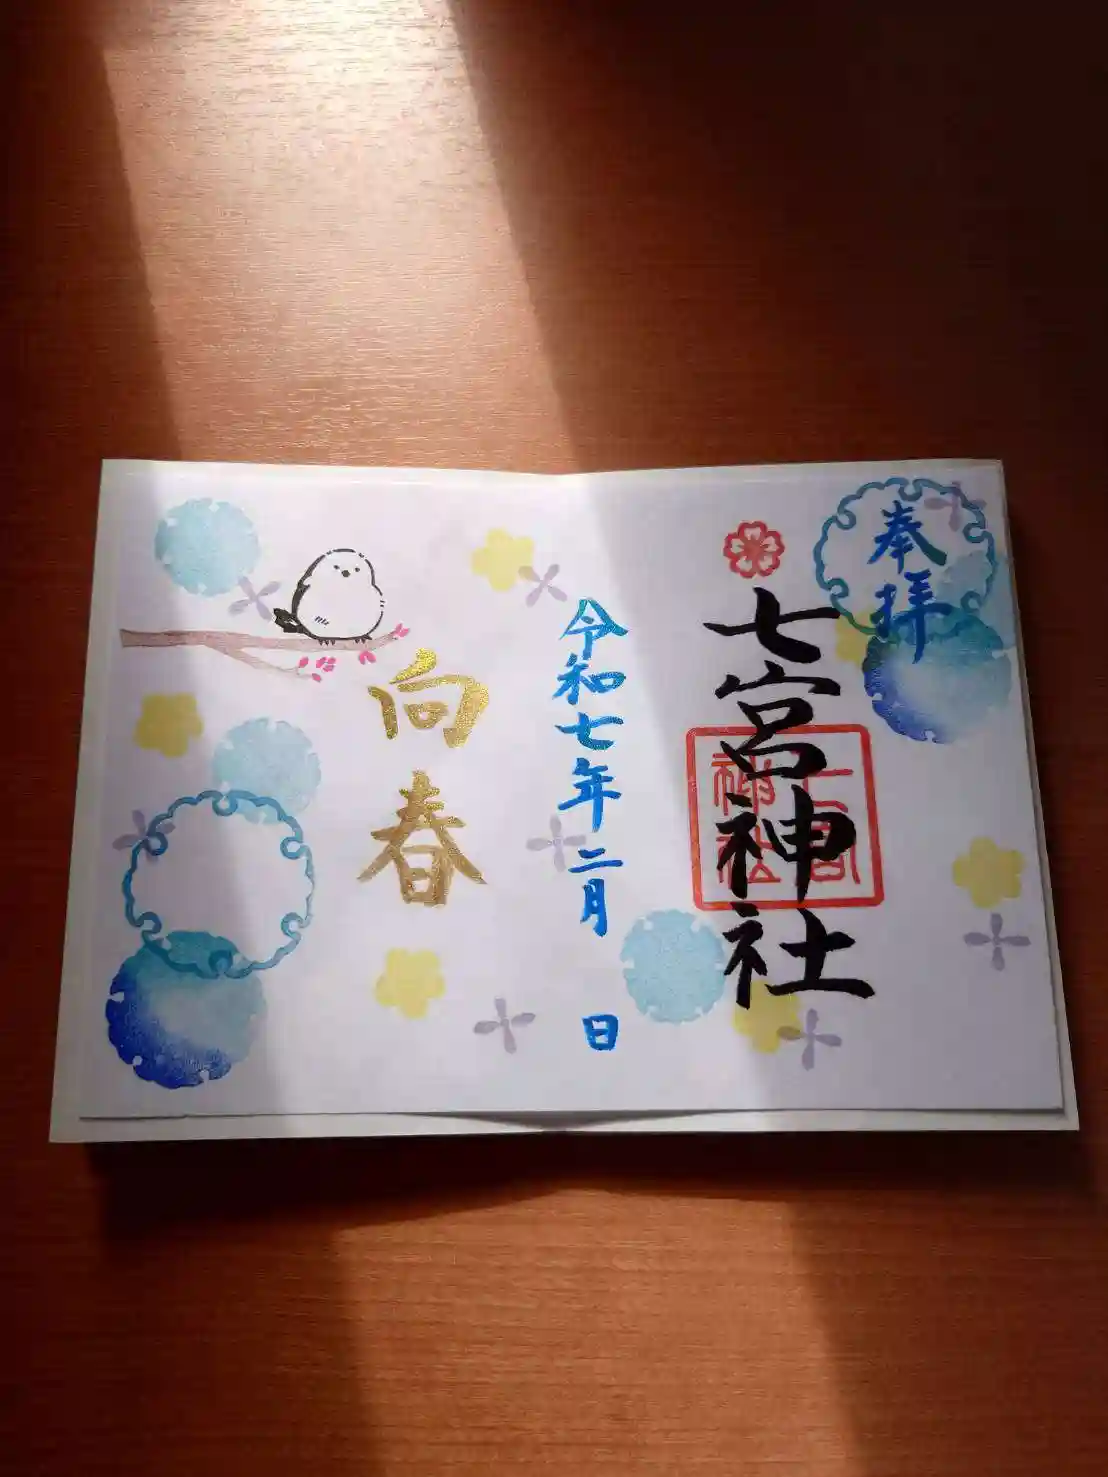 奉拝
七宮神社
七宮
神社
令和七年二月 日
向春